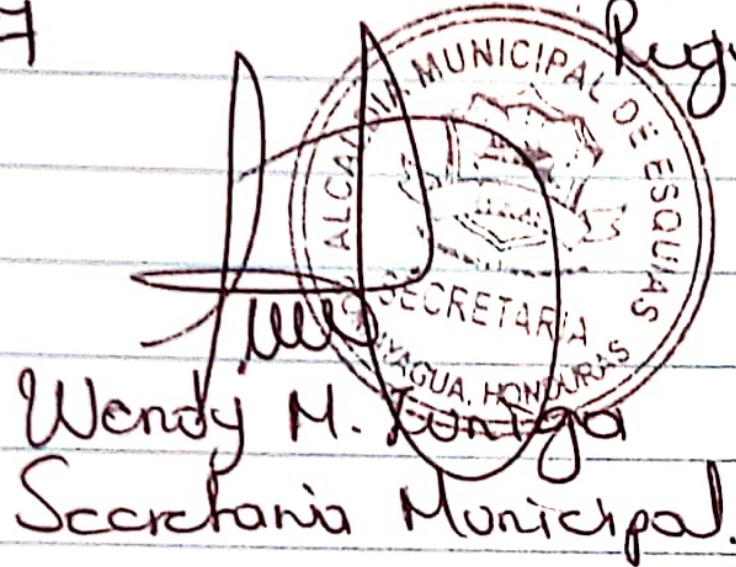 ALCALDIA MUNICIPAL DE ESQUIAS
SECRETARIA
HONDURAS
Wendy M. Zuniga
Secretaria Municipal.